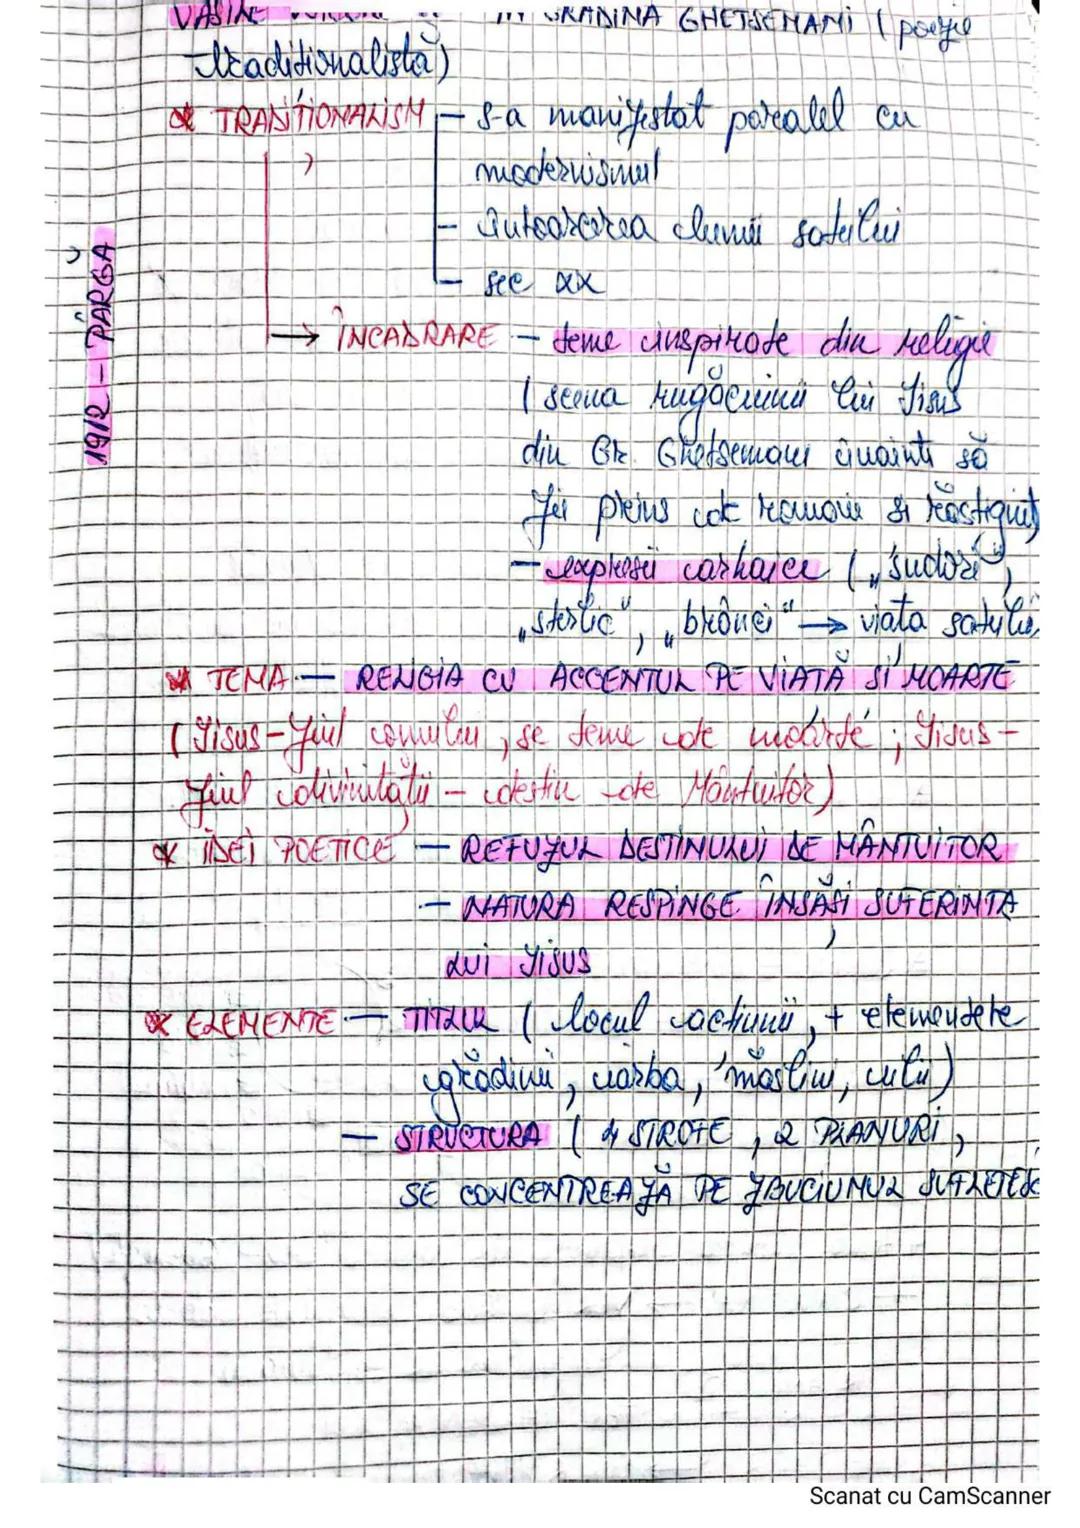 VASILE IN GRĂDINA GHETSEMANI (poezie
tradiționalistă)
* TRADIȚIONALISM – s-a manifestat paralel cu
modernismul
– întoarcerea lumii satului
– sec XX
1912 – PÂRGĂ
→ ÎNCADRARE – teme inspirate din religie
( scena rugăciunii lui Iisus
din Gr. Ghetsemani înainte să
fie prins de romani și răstignit)
– expresii arhaice („sudori",
„sterlic", „brânci" → viața satului
* TEMA – RELIGIA CU ACCENTUL PE VIAȚĂ SI MOARTE
( Iisus – Fiul omului, se teme de moarte; Iisus –
Fiul divinității – destin de Mântuitor)
* IDEI POETICE – REFUZUL DESTINULUI DE MÂNTUITOR
– NATURA RESPINGE ÎNSĂȘI SUFERINȚA
LUI IISUS
* ELEMENTE – TITLUL ( locul acțiunii, + elementele
grădinii, iarba, măslini, ulii)
– STRUCTURA ( 4 STROFE, 2 PLANURI,
SE CONCENTREAZĂ PE ZBUCIUMUL SUFLETESC
Scanat cu CamScanner